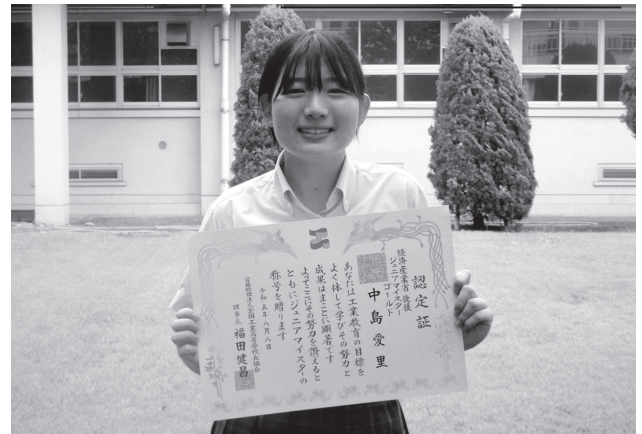 認定証
経済産業省後援
ジュニアマイスター
ゴールド
中島愛里
あなたは工業教育の目標を
よく体して学びその努力と
成果はまことに顕著です
よってここにその努力を讃えると
ともにジュニアマイスターの
称号を贈ります
令和五年八月八日
公益社団法人全国工業高等学校長協会
理事長 福田健昌